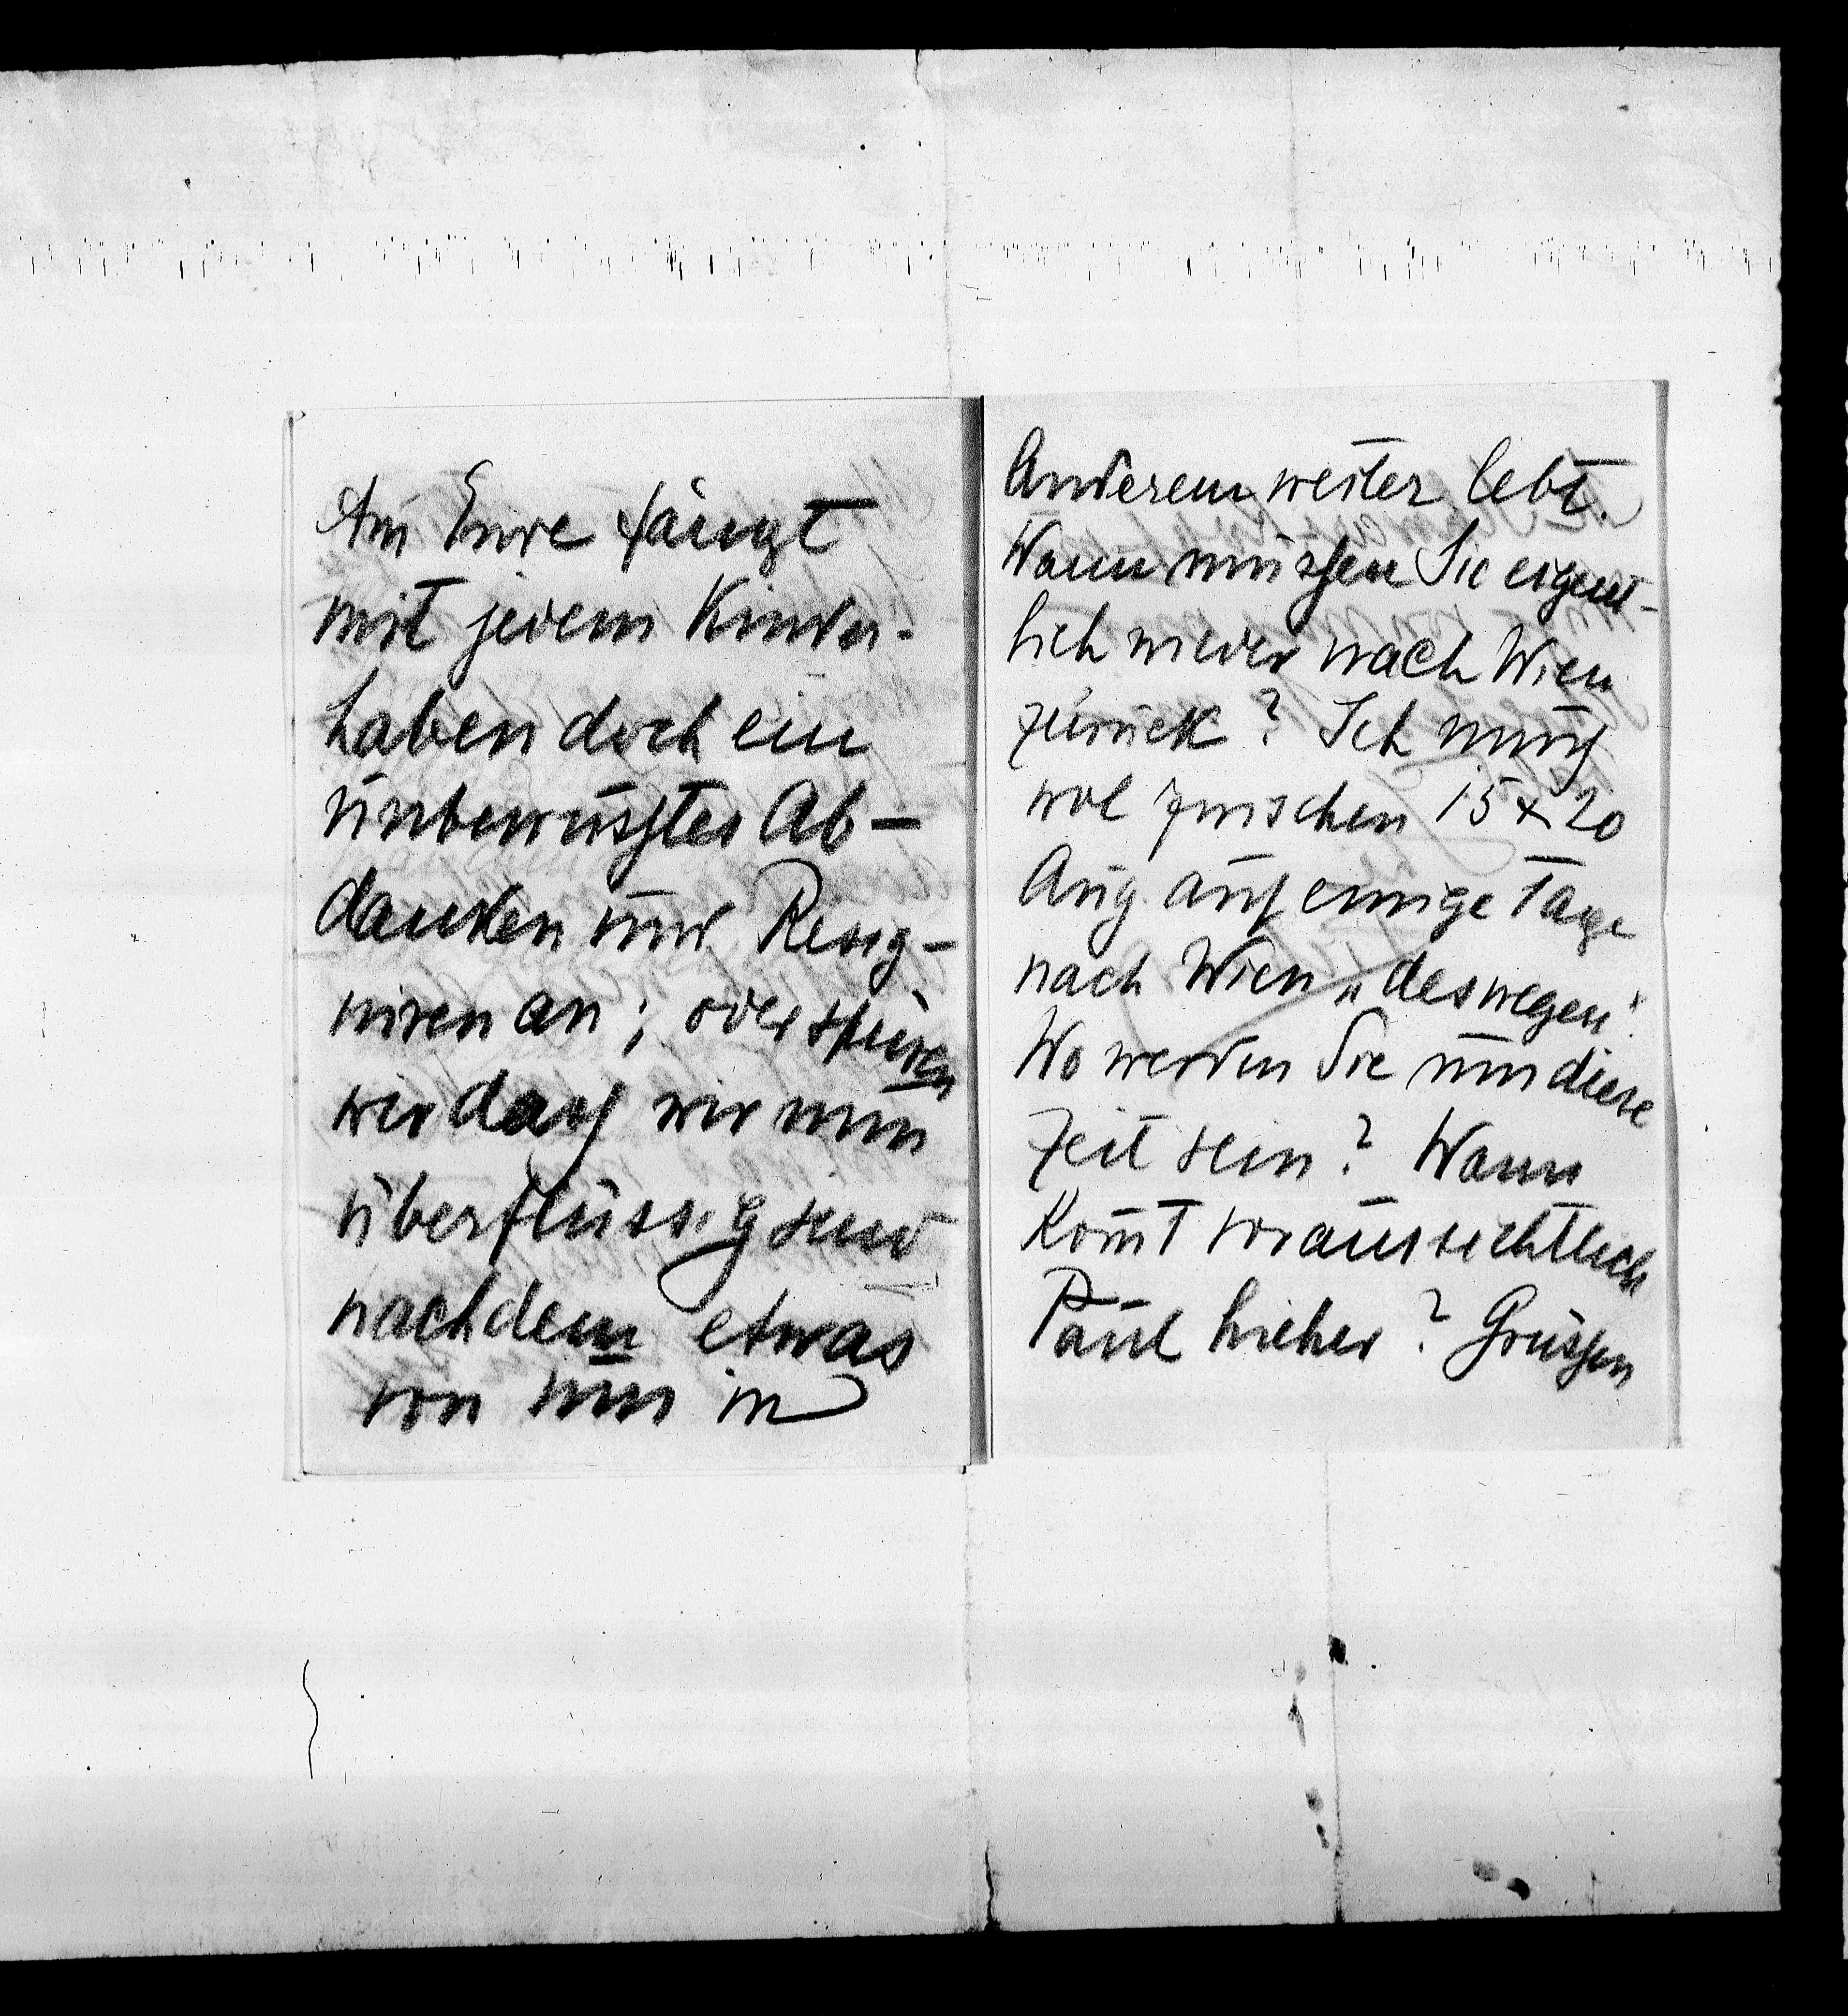 Am Ende fängt
mit jedem Kinder-
haben doch ein
unbewusstes Ab-
danken und Resig-
niren an; oder spüren
wir dass wir nun
überflüssig sind
nachdem etwas
von uns in
Anderem weiter lebt.
Wann müssen Sie eigent-
lich wieder nach Wien
zurück? Ich muss
wol zwischen 15 & 20
Aug. auf einige Tage
nach Wien „deswegen“.
Wo werden Sie um diese
Zeit sein? Wann
kom̄t voraussichtlich
Paul hieher? Grüssen